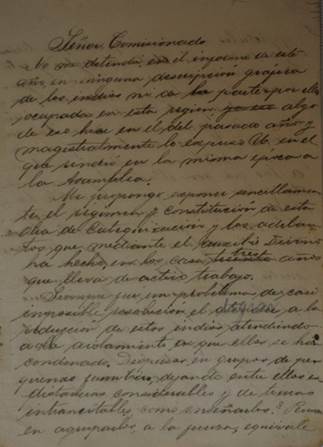 Señor Comisionado
No me detendré en el informe de este
año en ninguna descripción prolija
de los indios ni de la parte por ellos
ocupada en esta región algo
de eso hice en el del pasado año y
magistralmente lo expuso Ud. en el
que rindió en la misma época a
la Asamblea.
Me propongo exponer sencillamen-
te, el régimen y constitución de esta
obra de Catequización y los adelan-
tos que, mediante el auxilio Divino
ha hecho en los casi tres años
que lleva de activo trabajo.
Siempre fué un problema de casi
imposible resolución el a la
reducción de estos indios atendiendo
a el aislamiento en que ellos se han
condenado. Dispersos en grupos de pe-
queñas familias, dejando entre ellas
distancias considerables y de breñas
intransitables como enseñarlos? Pensar
en agruparlos, a la fuerza, equivale